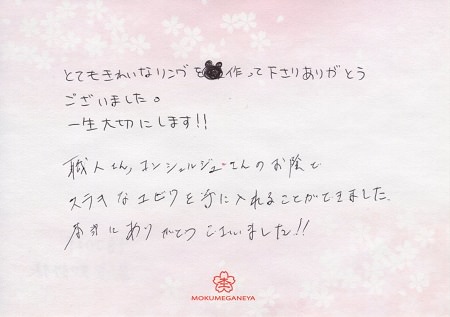 とてもきれいなリングを作って下さりありがとう
ございました。
一生大切にします!!
職人さん,コンシェルジュさんのお陰で
ステキなユビワを手に入れることができました.
本当にありがとうございました!!
MOKUMEGANEYA